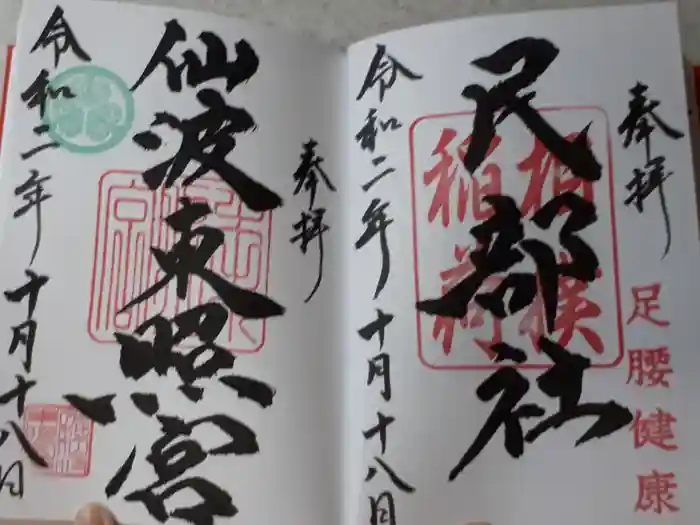 奉拝
足腰健康
民部社
相撲
稲荷
令和二年十月十八日
奉拝
仙波東照宮
令和二年十月十八日